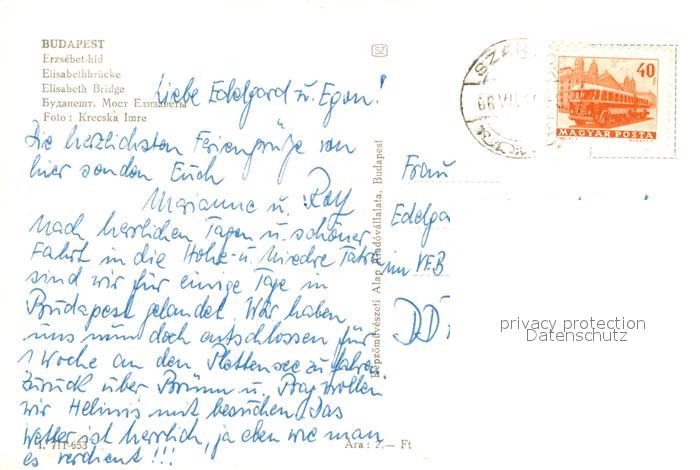 BUDAPEST
Erzsébet-híd
Elisabethbrücke
Elisabeth Bridge
Будапешт. Мост Елизабеты
Foto: Krecska Imre
SZ
Liebe Edelgard u. Egon!
Die herzlichsten Feriengrüße von
hier senden Euch
Marianne u. Roy
Nach herrlichen Tagen u. schöner
Fahrt in die Hohe- u. Niedre Tatra
sind wir für einige Tage in
Budapest gelandet. Wir haben
uns nun doch entschlossen für
1 Woche an den Plattensee zu fahren
Zurück über Brünn u. Prag wollen
wir Helmis mit besuchen. Das
Wetter ist herrlich, ja eben wie man
es verdient!!!
T. 711-653
Ára: 2,— Ft
Képzőművészeti Alap Kiadóvállalata, Budapest
40 f
MAGYAR POSTA
Frau
Edelga
im VEB
DD
privacy protection
Datenschutz